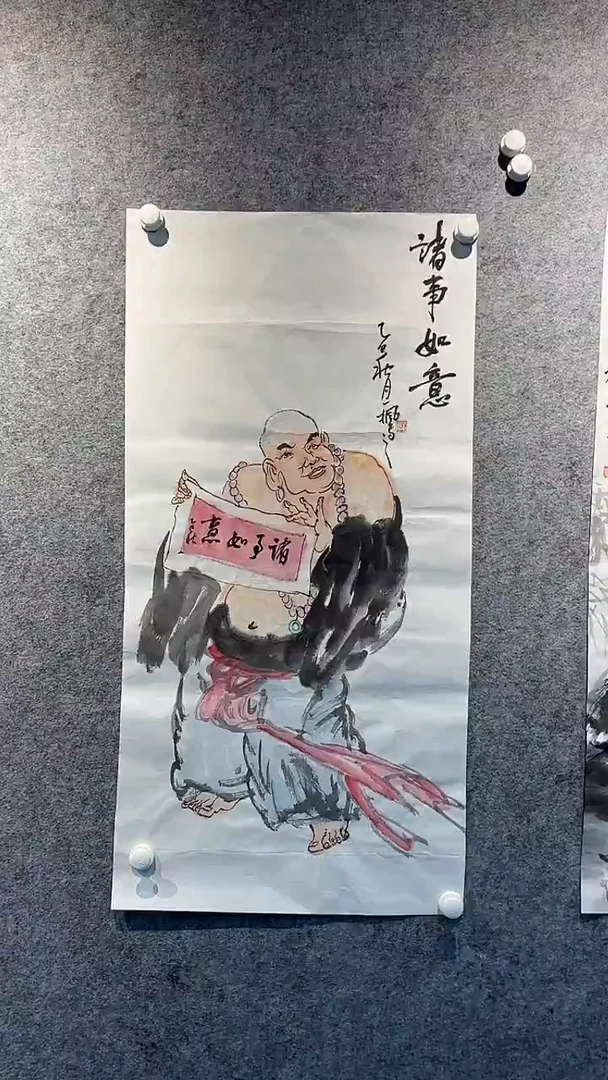 諸事如意
乙巳秋月
諸事如意
乙巳秋